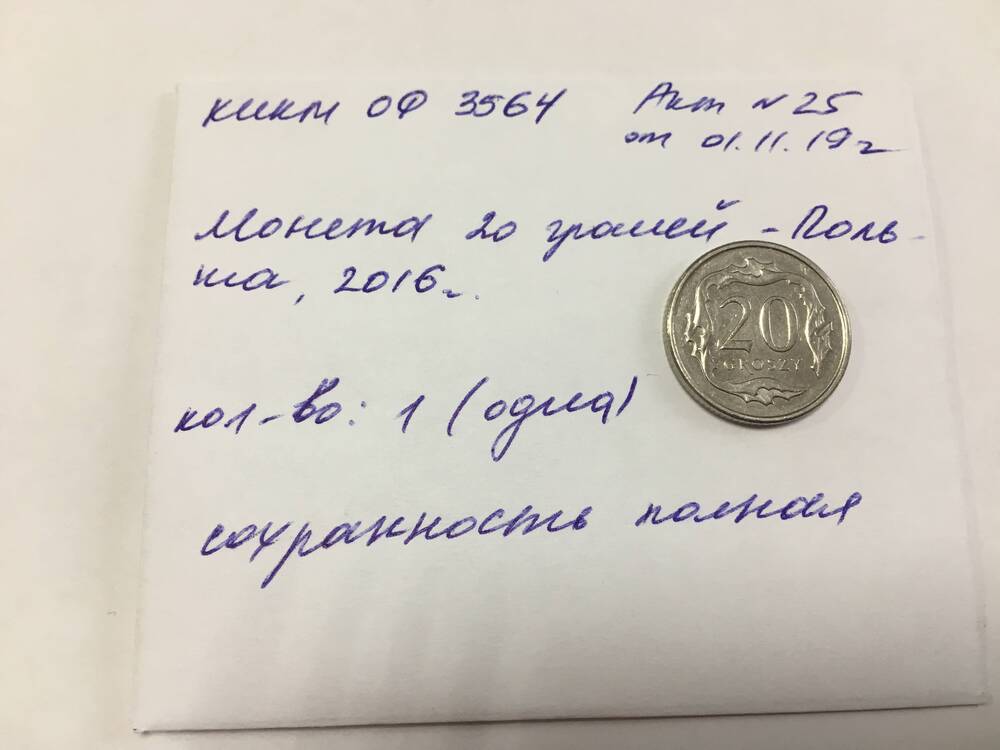 КИКМ ОФ 3564 Акт N 25
от 01.11.19г
Монета 20 грошей - Поль-
ша, 2016г.
кол-во: 1 (одна)
сохранность полная
20
GROSZY